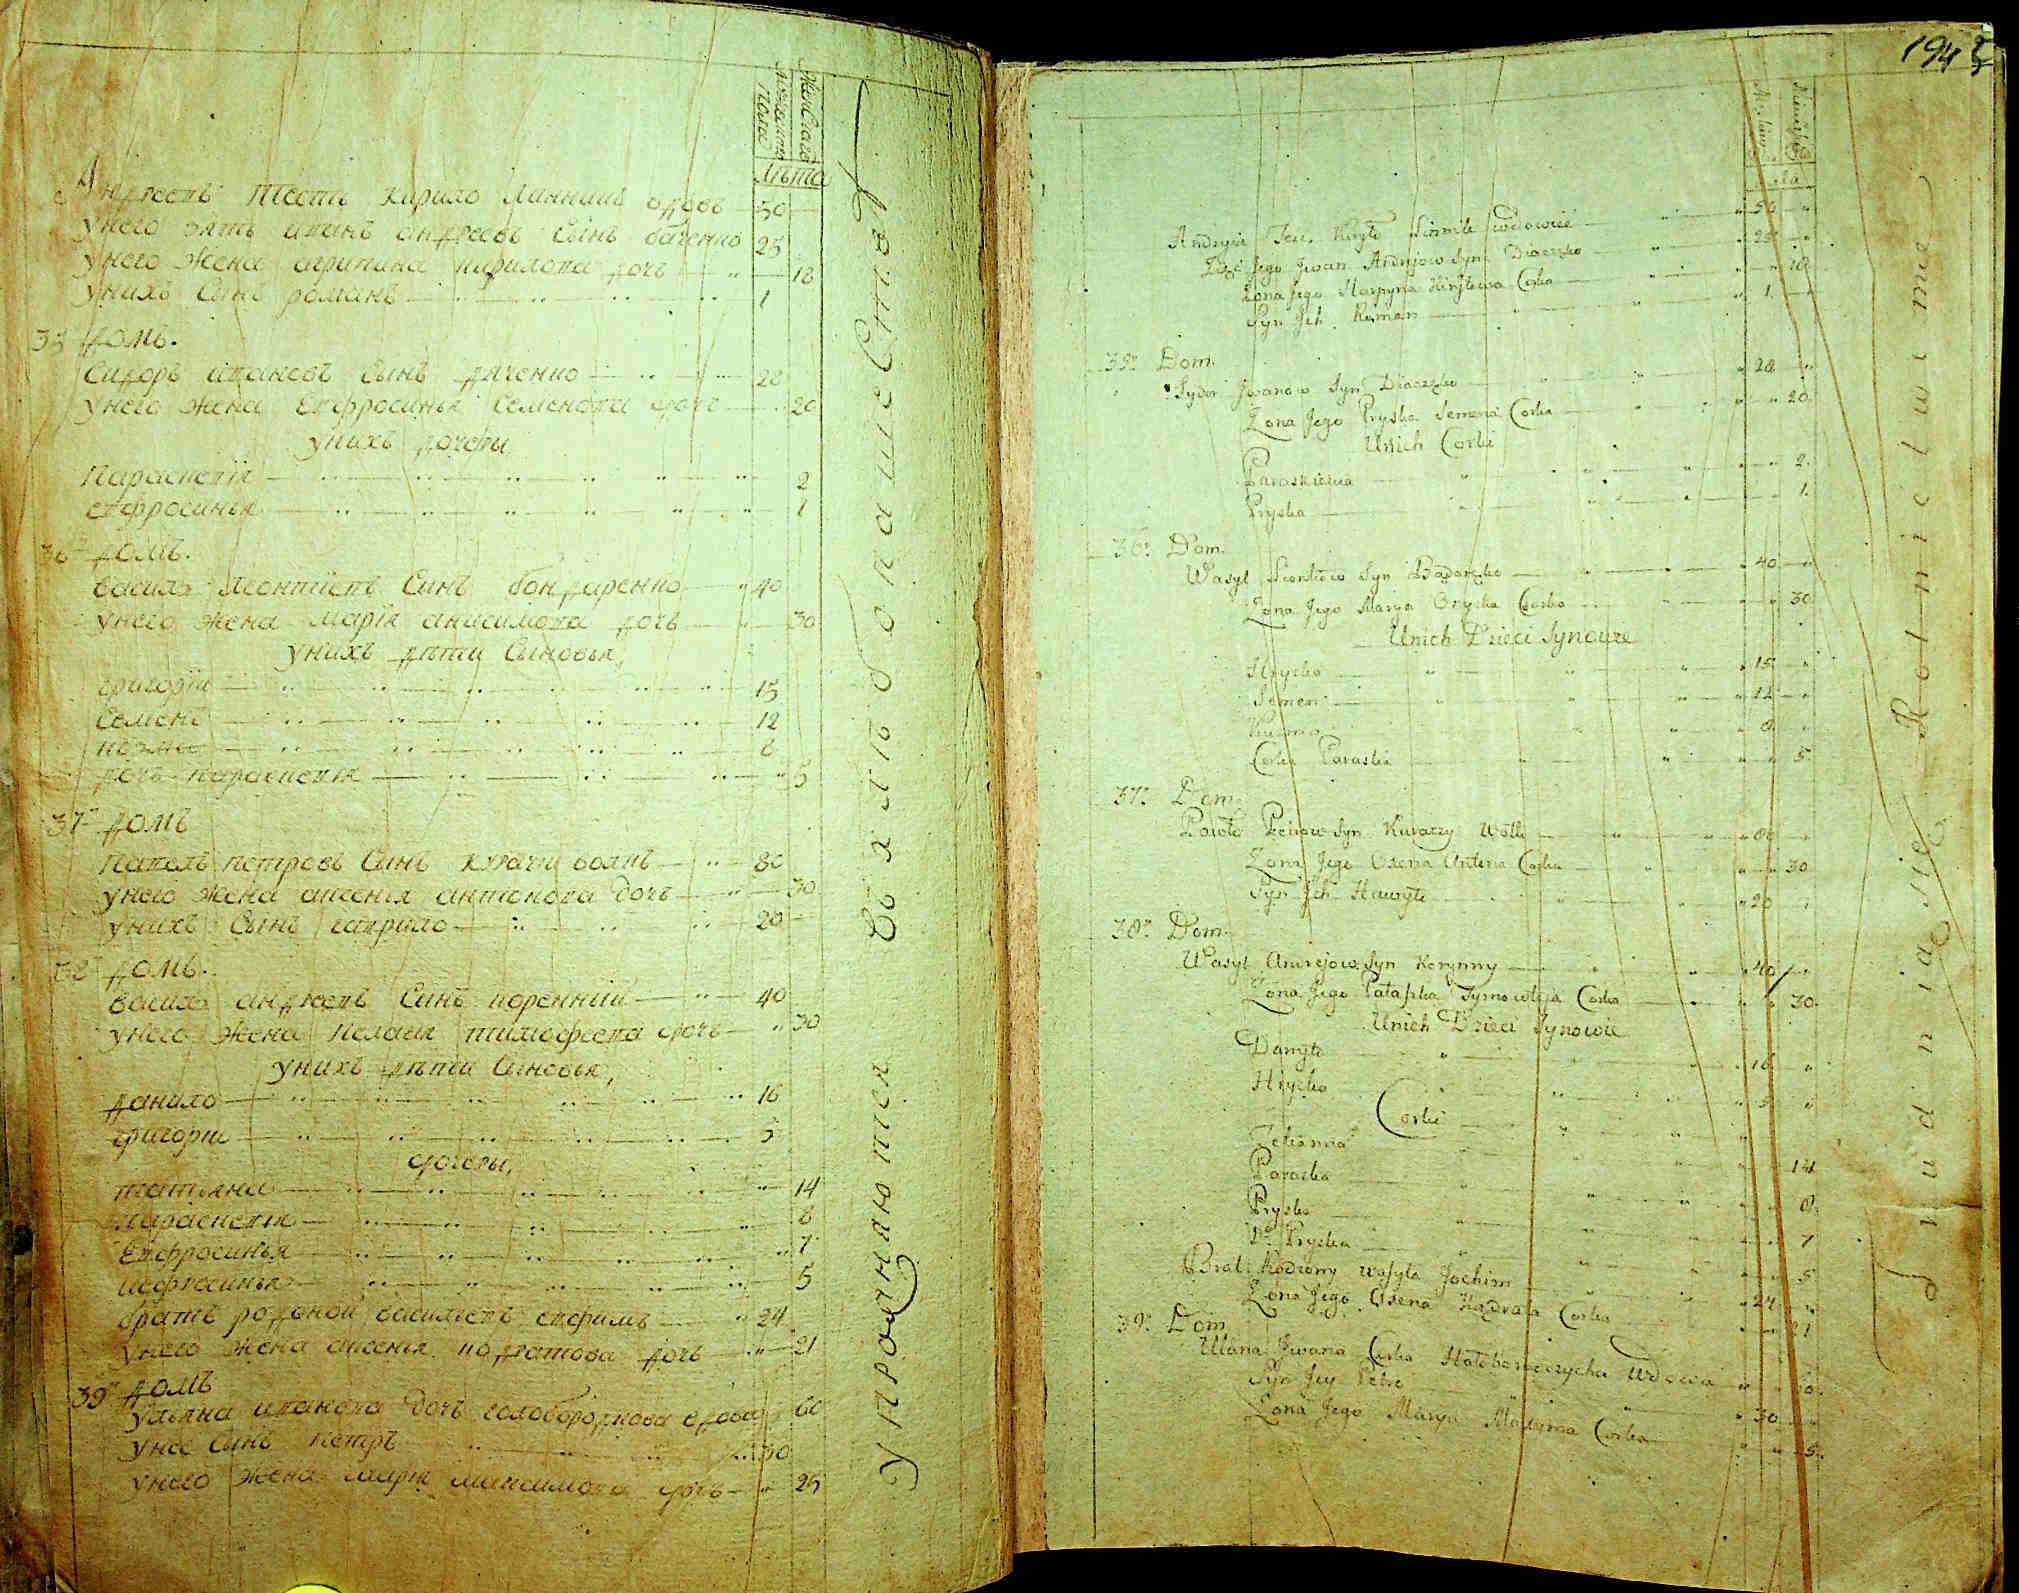 Женскаго
Мужеска
Пола
Лѣта
Андреевъ Тесть Кирило Линникъ вдовъ 50
Унего зять иванъ андреевъ Сынъ 25
Унего Жена агрипина кирилова дочь 18
Унихъ Сынъ романъ 1
35 домъ.
Сидоръ ивановъ Сынъ дяченко 28
Унего Жена Евфросинья Семенова дочь 20
Унихъ дочери
Параскевія 2
евфросинья 1
36 домъ.
василь Леонтіевъ Сынъ бондаренко 40
Унего Жена марія анисимова дочь 30
Унихъ дѣти Сыновья,
григорій 15
Семенъ 12
козма 8
дочь параскевія 5
37 домъ
Павелъ петровъ Сынъ 80
Унего Жена аксенія антонова дочь 30
Унихъ Сынъ гаврило 20
38 домъ.
василь андреевъ Сынъ коренній 40
Унего Жена Пелагія тимофеева дочь 30
Унихъ дѣти Сыновья,
данило 16
григорій 5
дочеры,
татіяна 14
параскевія 8
Евфросинья 7
иефросинья 5
братъ родной василевъ ефимъ 24
Унего Жена аксенія кодратова дочь 21
39 домъ
Ульяна иванова дочь голобородкова вдова 60
Унее Сынъ Петръ 30
Унего Жена марія максимова дочь 25
Упромянаются
1943
Andryia Teść Kiryło wdowiec 50
Zięć Jego Jwan Andrijow Syn Diaczeko 25
Żona Jego Harpyna Kiryłowa Corka 18
Syn Ich Roman 1
35. Dom.
Sydor Jwanow Syn Diaczeko 28
Żona Jego Pryska Semena Corka 20
Unich Corki
Paraskiewia 2
Pryska 1
36. Dom.
Wasyl Leontiow Syn Bądareko 40
Żona Jego Marya Onyska Corka 30
Unich Dzieci Synowie
Hrycko 15
Semen 12
Kuzma 8
Corka Paraska 5
37. Dom.
Pawło Petrow Syn 80
Żona Jego Oxena Antona Corka 30
Syn Ich Hawryło 20
38. Dom.
Wasyl Andrejow Syn Korynny 40
Żona Jego Pałaszka Tymowieja Corka 30
Unich Dzieci Synowie
Danyło 16
Hrycko 5
Corki
Tetianna 14
Paraska 8
Pryska 7
2a Pryska 5
Brat Rodzony Wasyla Jochim 24
Żona Jego Oxena Kądrata Corka 21
39. Dom
Ulana Jwana Corka Hołoborodczycha Wdowa 60
Syn Jey Petro 30
Żona Jego Marya Maxyma Corka 5